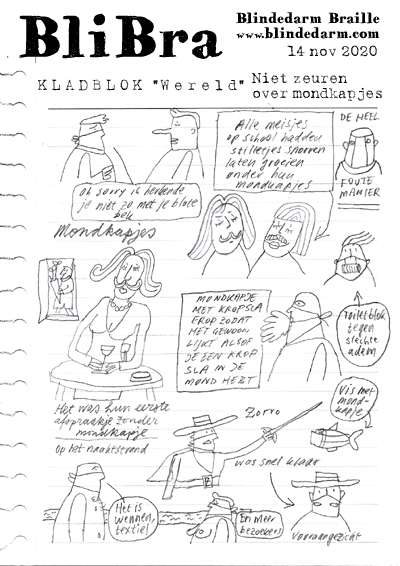 BliBra
Blindedarm Braille
www.blindedarm.com
14 nov 2020
KLADBLOK "Wereld"
Niet zeuren
over mondkapjes
Alle meisjes
op school hadden
stilletjes snorren
laten groeien
onder hun
mondkapjes
DE HEEL
FOUTE
MANIER
Oh sorry ik herkende
je niet zo met je blote
bek
Mondkapjes
MONDKAPJE
MET KROPSLA
EROP ZODAT
HET GEWOON
LIJKT ALSOF
JE EEN KROP
SLA IN JE
MOND HEBT
Toiletblok
tegen
slechte
adem
Het was hun eerste
afspraakje zonder
mondkapje
op het naaktstrand
Zorro
Vis met
mond-
kapje
was snel klaar
Het is
wennen,
textiel
En meer
bezoekers
Vooraangezicht